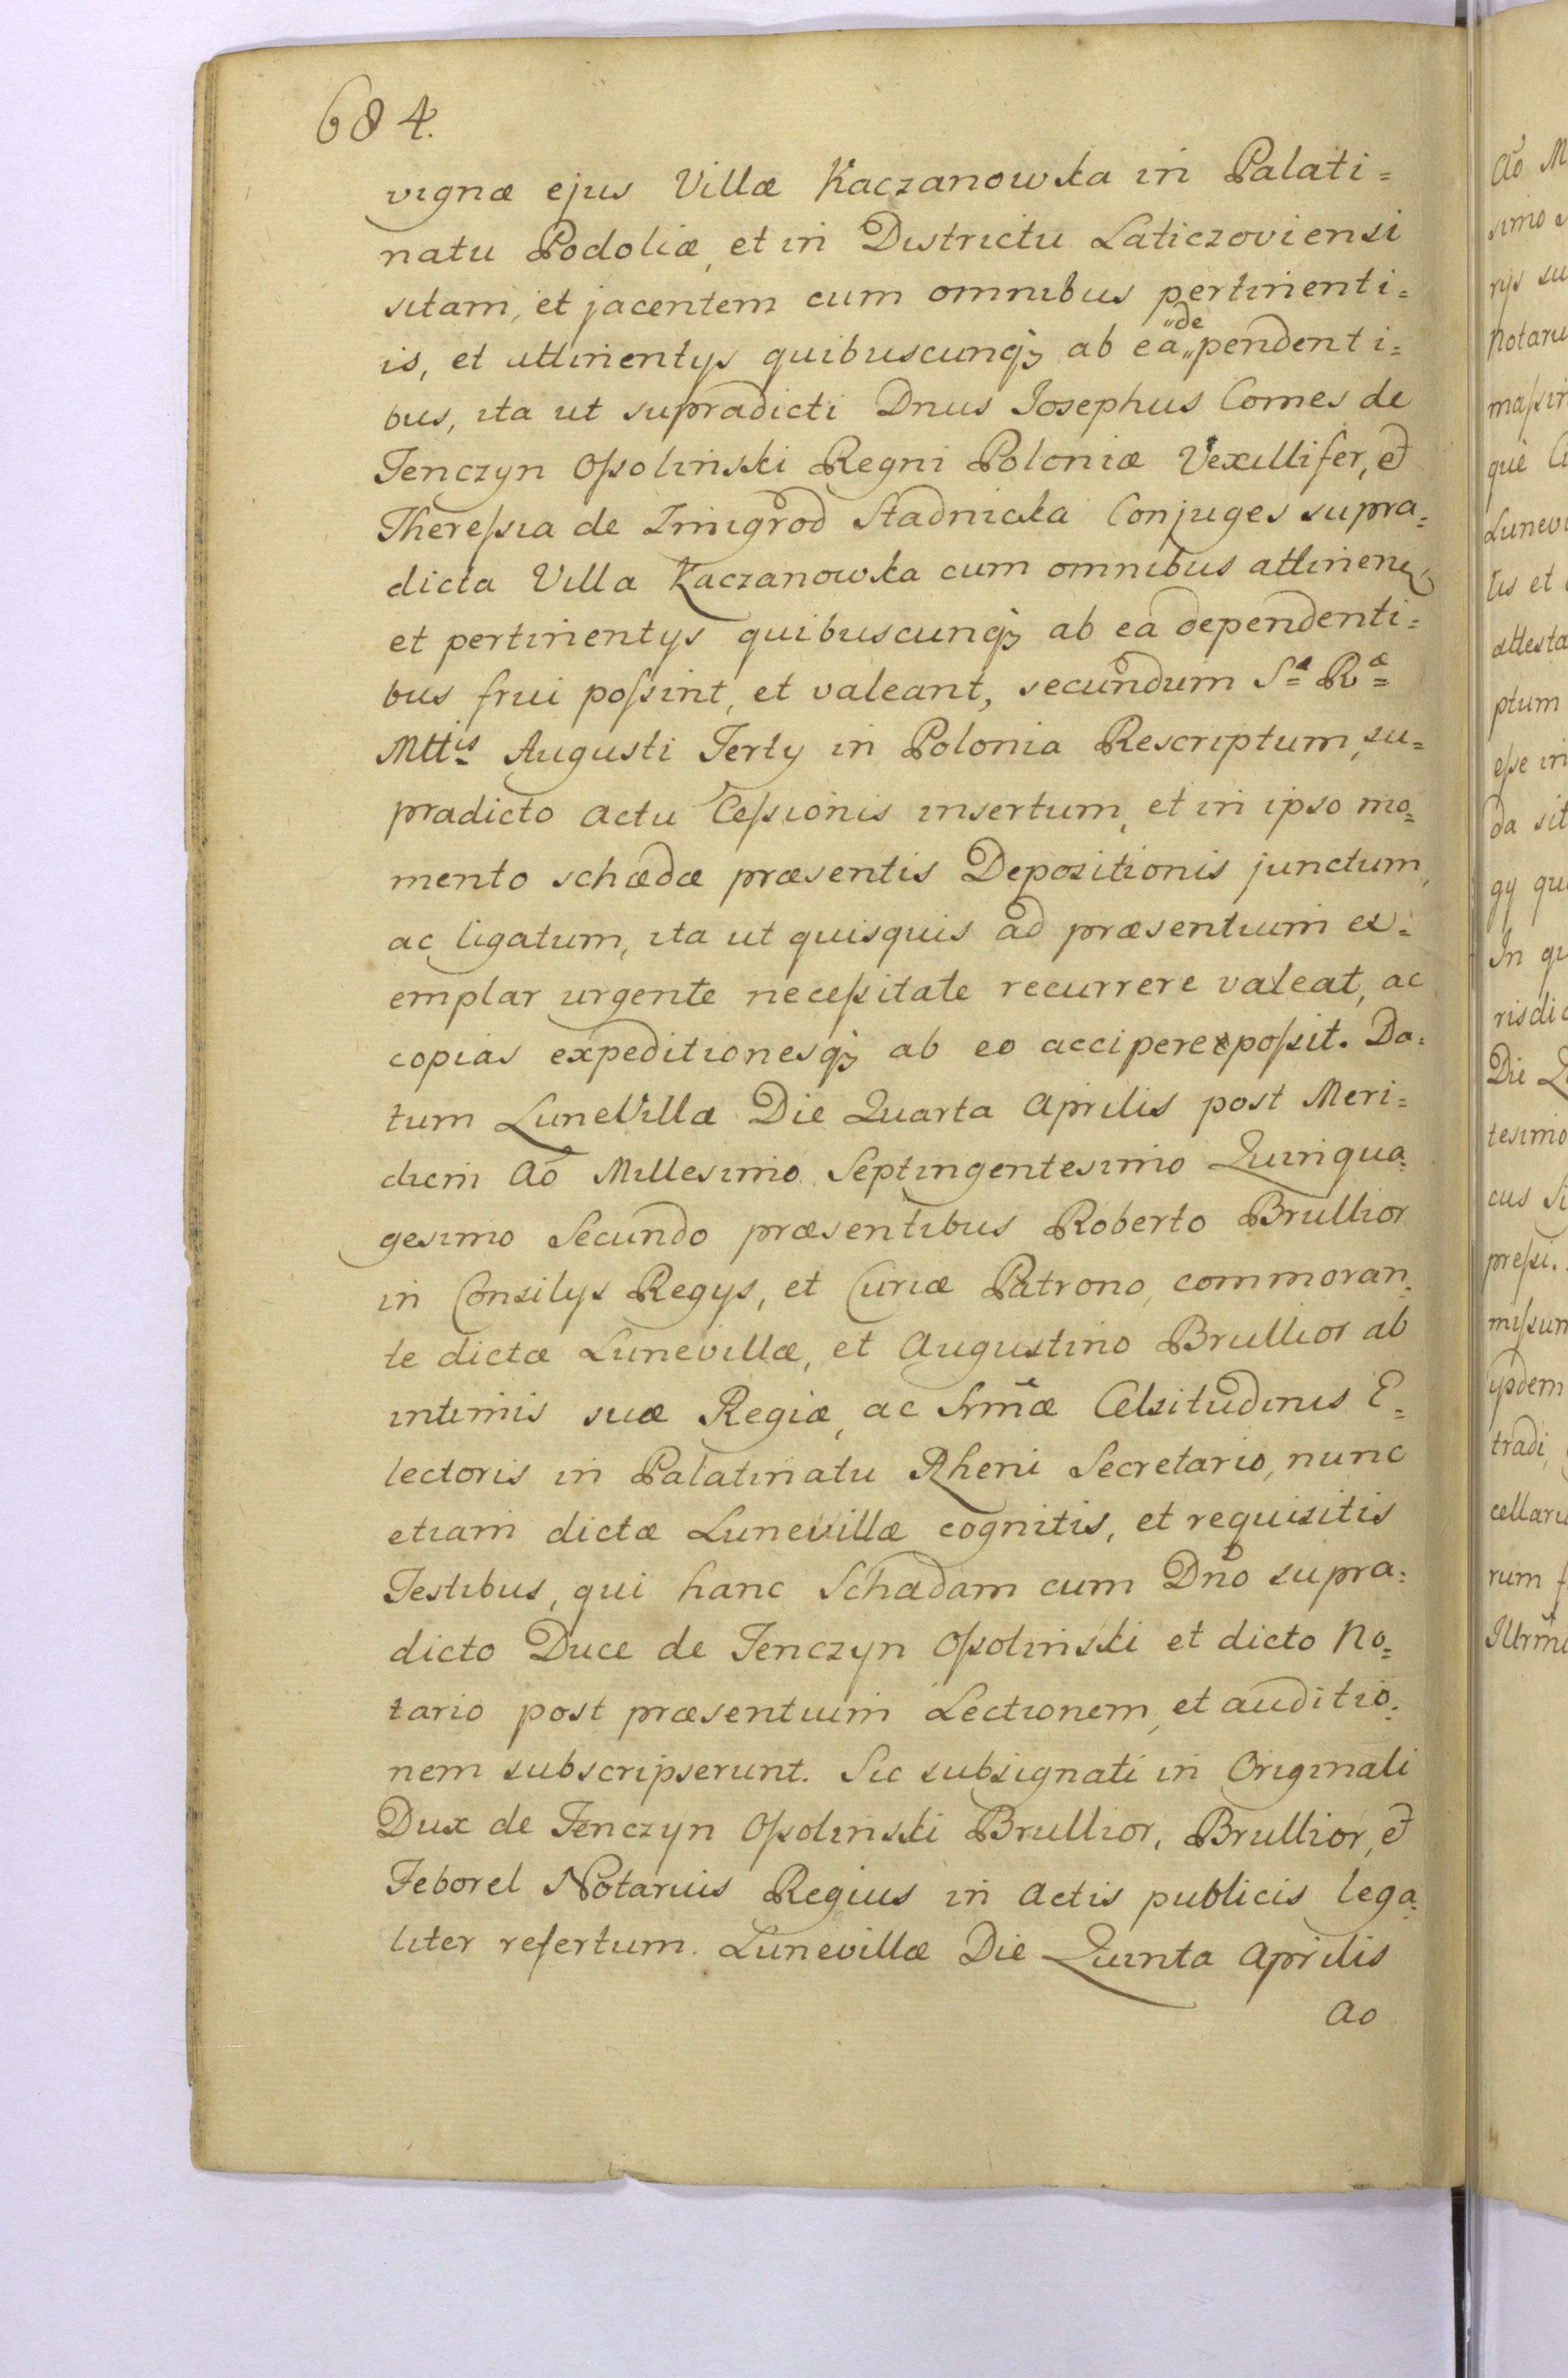 684.
vignæ ejus Villæ Kaczanowska in Palati=
natu Podoliæ, et in Districtu Laticzoviensi
sitam, et jacentem cum omnibus pertinenti=
is, et attinentys quibuscunqꝫ ab ea „de„ pendenti=
bus, ita ut supradicti Dnus Josephus Comes de
Tenczyn Oſsolinski Regni Poloniæ Vexillifer, et
Thereſsia de Zmigrod Stadnicka Conjuges supra=
dicta Villa Kaczanowska cum omnibus attinen:
et pertinentys quibuscunqꝫ ab ea dependenti=
bus frui poſsint, et valeant, secundum Sᵃ Rᵃᵉ
Mttis Augusti Terty in Polonia Rescriptum, su=
pradicto actu Ceſsionis insertum, et in ipso mo=
mento schædæ præsentis Depositionis junctum,
ac ligatum, ita ut quisquis ad præsentium ex=
emplar urgente neceſsitate recurrere valeat, ac
copias expeditionesqꝫ ab eo accipere poſsit. Da=
tum LuneVillæ Die Quarta Aprilis post Meri=
diem Aō Millesimo Septingentesimo Quinqua=
gesimo Secundo præsentibus Roberto Brullior
in Consilys Regys, et Curiæ Patrono, commoran=
te dictæ Lunevillæ, et Augustino Brullior ab
intimis suæ Regiæ, ac Srm̃æ Celsitudinis E=
lectoris in Palatinatu Rheni Secretario, nunc
etiam dictæ Lunevillæ cognitis, et requisitis
Testibus, qui hanc Schædam cum Dño supra=
dicto Duce de Tenczyn Oſsolinski et dicto No=
tario post præsentium Lectionem, et auditio=
nem subscripserunt. Sic subsignati in Originali
Dux de Tenczyn Oſsolinski Brullior, Brullior, et
Feborel Notarius Regius in Actis publicis lega=
liter refertum. Lunevillæ Die Quinta Aprilis
Ao